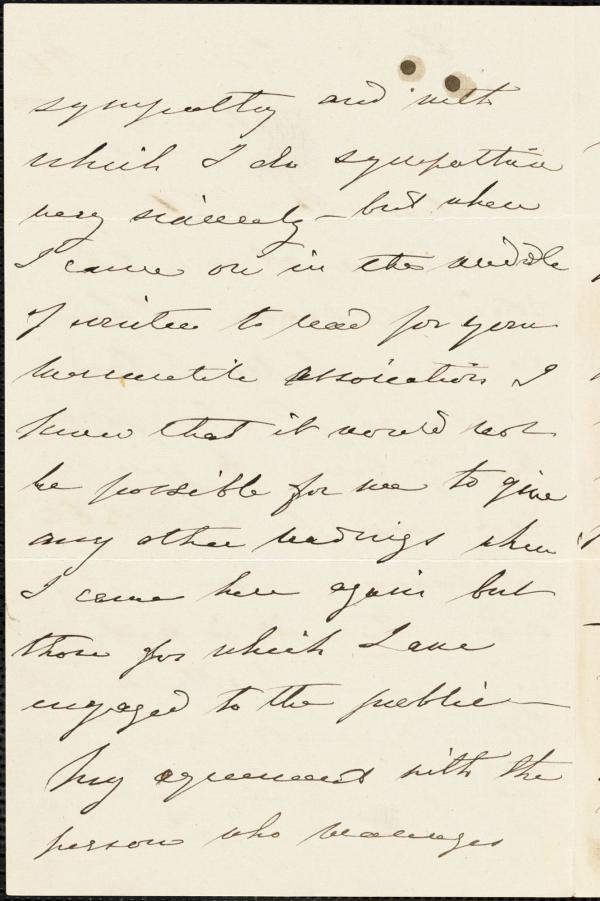 sympathy and with
which I do sympathise
very sincerely – but when
I came on in the middle
of winter to read for your
Mercantile Association I
knew that it would not
be possible for me to give
any other readings when
I came here again but
those for which I am
engaged to the public –
My agreement with the
person who manages